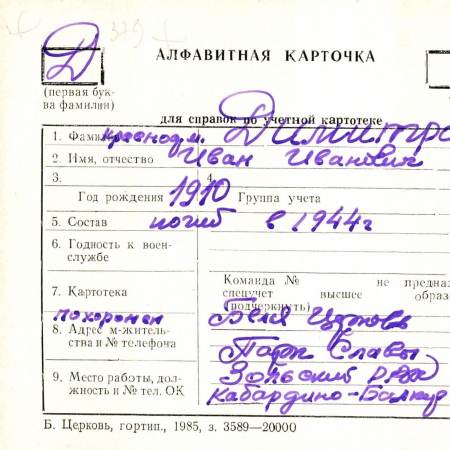 Д 379
АЛФАВИТНАЯ КАРТОЧКА
(первая бук-
ва фамилии)
для справок по учетной картотеке
1. Фамил краснодм. Димитро
2. Имя, отчество Иван Иванович
3. 4.
Год рождения 1910 Группа учета
5. Состав погиб в 1944г
6. Годность к воен-
службе
Команда № не предназ
спецучет высшее образо
(подчеркнуть)
7. Картотека
похоронен Белая Церковь
8. Адрес м-житель-
ства и № телефона
Парк Славы
9. Место работы, дол-
жность и № тел. ОК
Зольский р-он
Кабардино-Балкар
Б. Церковь, гортип., 1985, з. 3589—20000